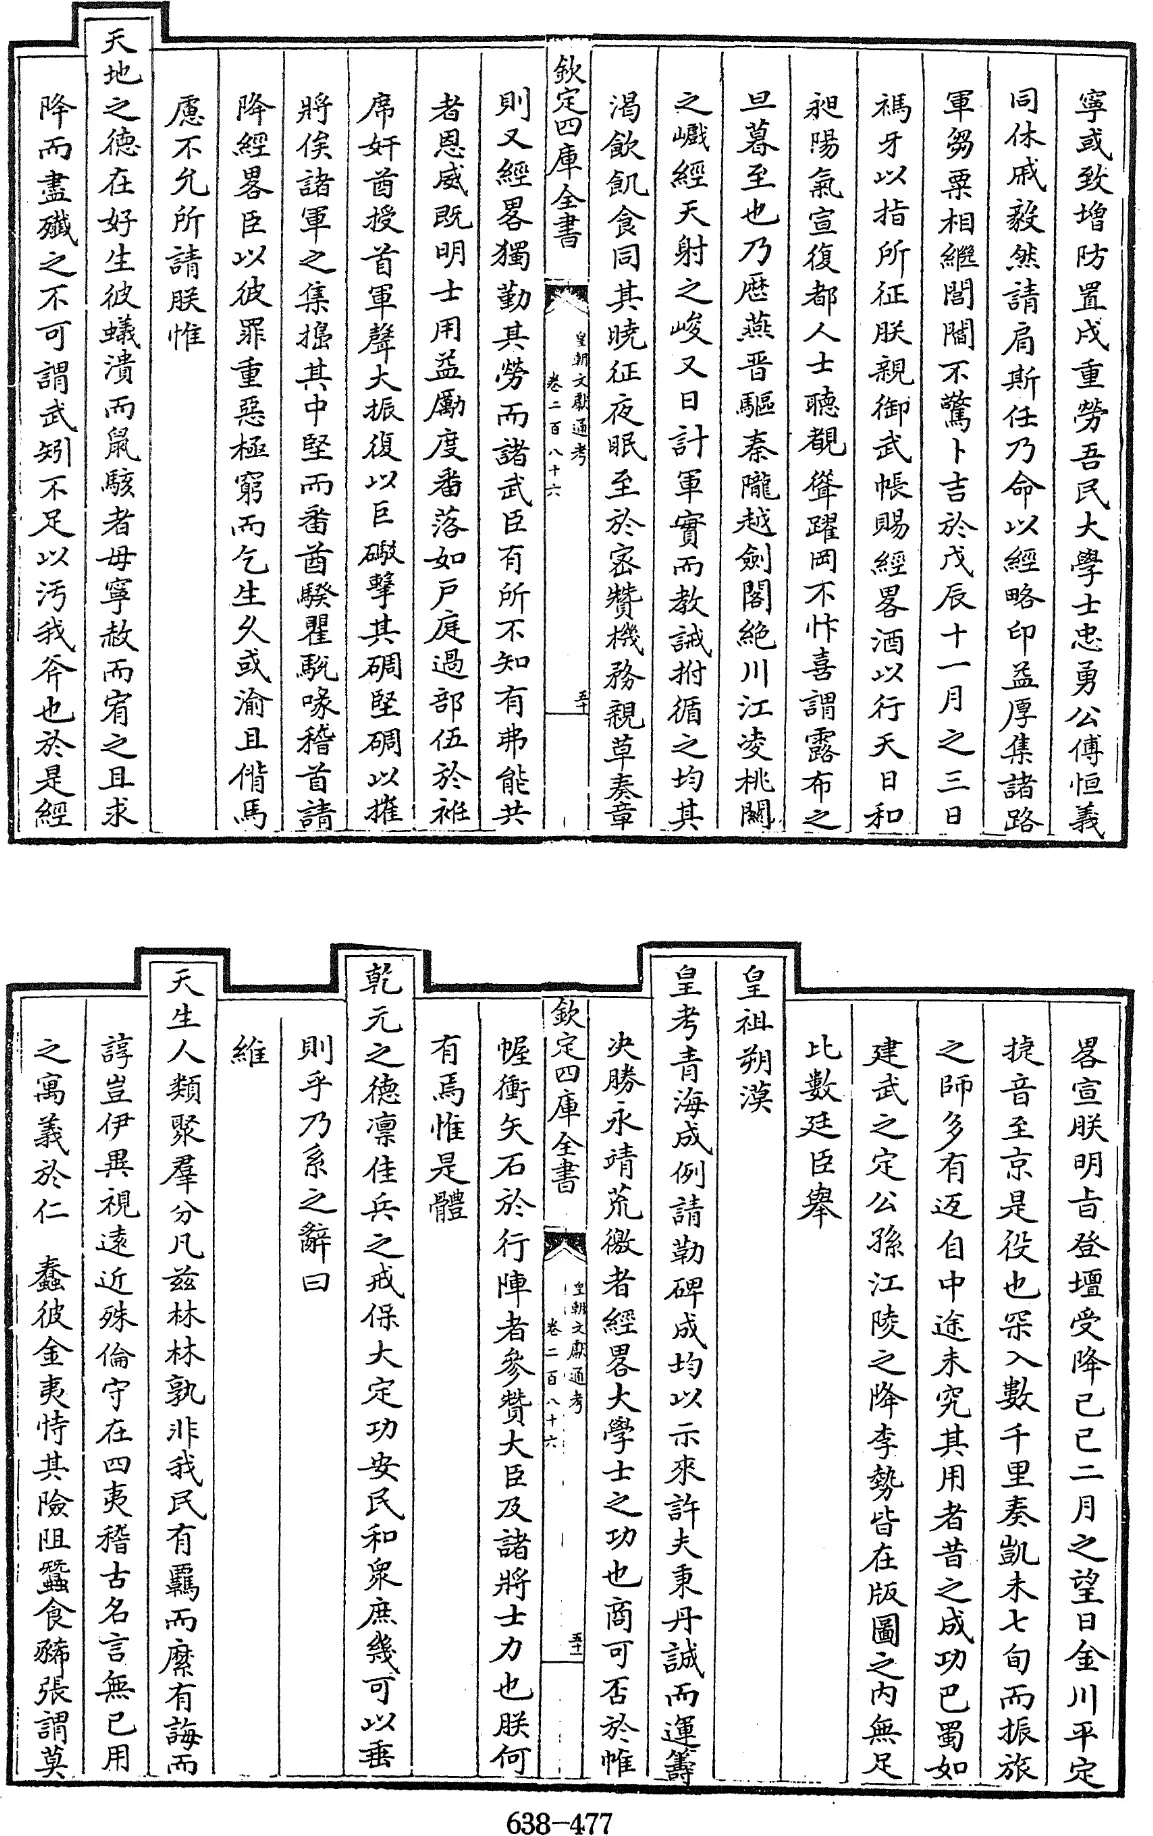 寧或致增防置戍重勞吾民大學士忠勇公傅恒義
同休戚毅然請肩斯任乃命以經略印益厚集諸路
軍芻粟相繼閭閻不驚卜吉於戊辰十一月之三日
禡牙以指所征朕親御武帳賜經畧酒以行天日和
昶陽氣宣復都人士聴覩聳躍罔不忭喜謂露布之
旦暮至也乃歴燕晋驅秦隴越劍閣絶川江凌桃關
之巇經天射之峻又日計軍實而教誡拊循之均其
渴飲飢食同其曉征夜眠至於密贊機務親草奏章
欽定四庫全書
皇朝文獻通考
卷二百八十六
五十
則又經畧獨勤其勞而諸武臣有所不知有弗能共
者恩威既明士用益勵度番落如戶庭過部伍於袵
席奸酋授首軍聲大振復以巨礮擊其碉堅碉以摧
將俟諸軍之集搗其中堅而番酋騤瞿駾喙稽首請
降經畧臣以彼罪重惡極窮而乞生久或渝且偝焉
慮不允所請朕惟
天地之德在好生彼蟻潰而鼠駭者毋寧赦而宥之且求
降而盡殲之不可謂武矧不足以污我斧也於是經
畧宣朕明旨登壇受降己巳二月之望日金川平定
捷音至京是役也罙入數千里奏凱未七旬而振旅
之師多有返自中途未究其用者昔之成功巴蜀如
建武之定公孫江陵之降李勢皆在版圖之内無足
比數廷臣舉
皇祖朔漠
皇考青海成例請勒碑成均以示來許夫秉丹誠而運籌
決勝永靖荒徼者經畧大學士之功也商可否於帷
欽定四庫全書
皇朝文獻通考
卷二百八十六
五十一
幄衝矢石於行陣者參贊大臣及諸將士力也朕何
有焉惟是體
乾元之德凛佳兵之戒保大定功安民和衆庶幾可以垂
則乎乃系之辭曰
維
天生人類聚羣分凡兹林林孰非我民有羈而縻有誨而
諄豈伊異視逺近殊倫守在四夷稽古名言無已用
之寓義於仁　蠢彼金夷恃其險阻蠶食豨張謂莫
638-477